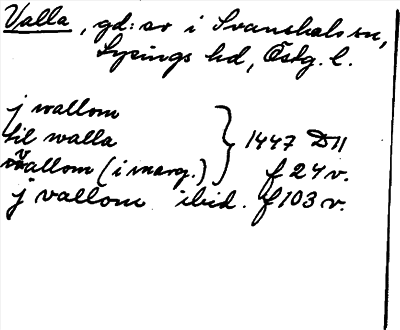 Valla, gd:ar i Svanshals sn,
Lysings hd, Östg. l.
j wallom
til walla } 1447 D11
vallom (i marg.) f 24 v.
j vallom ibid. f 103 v.